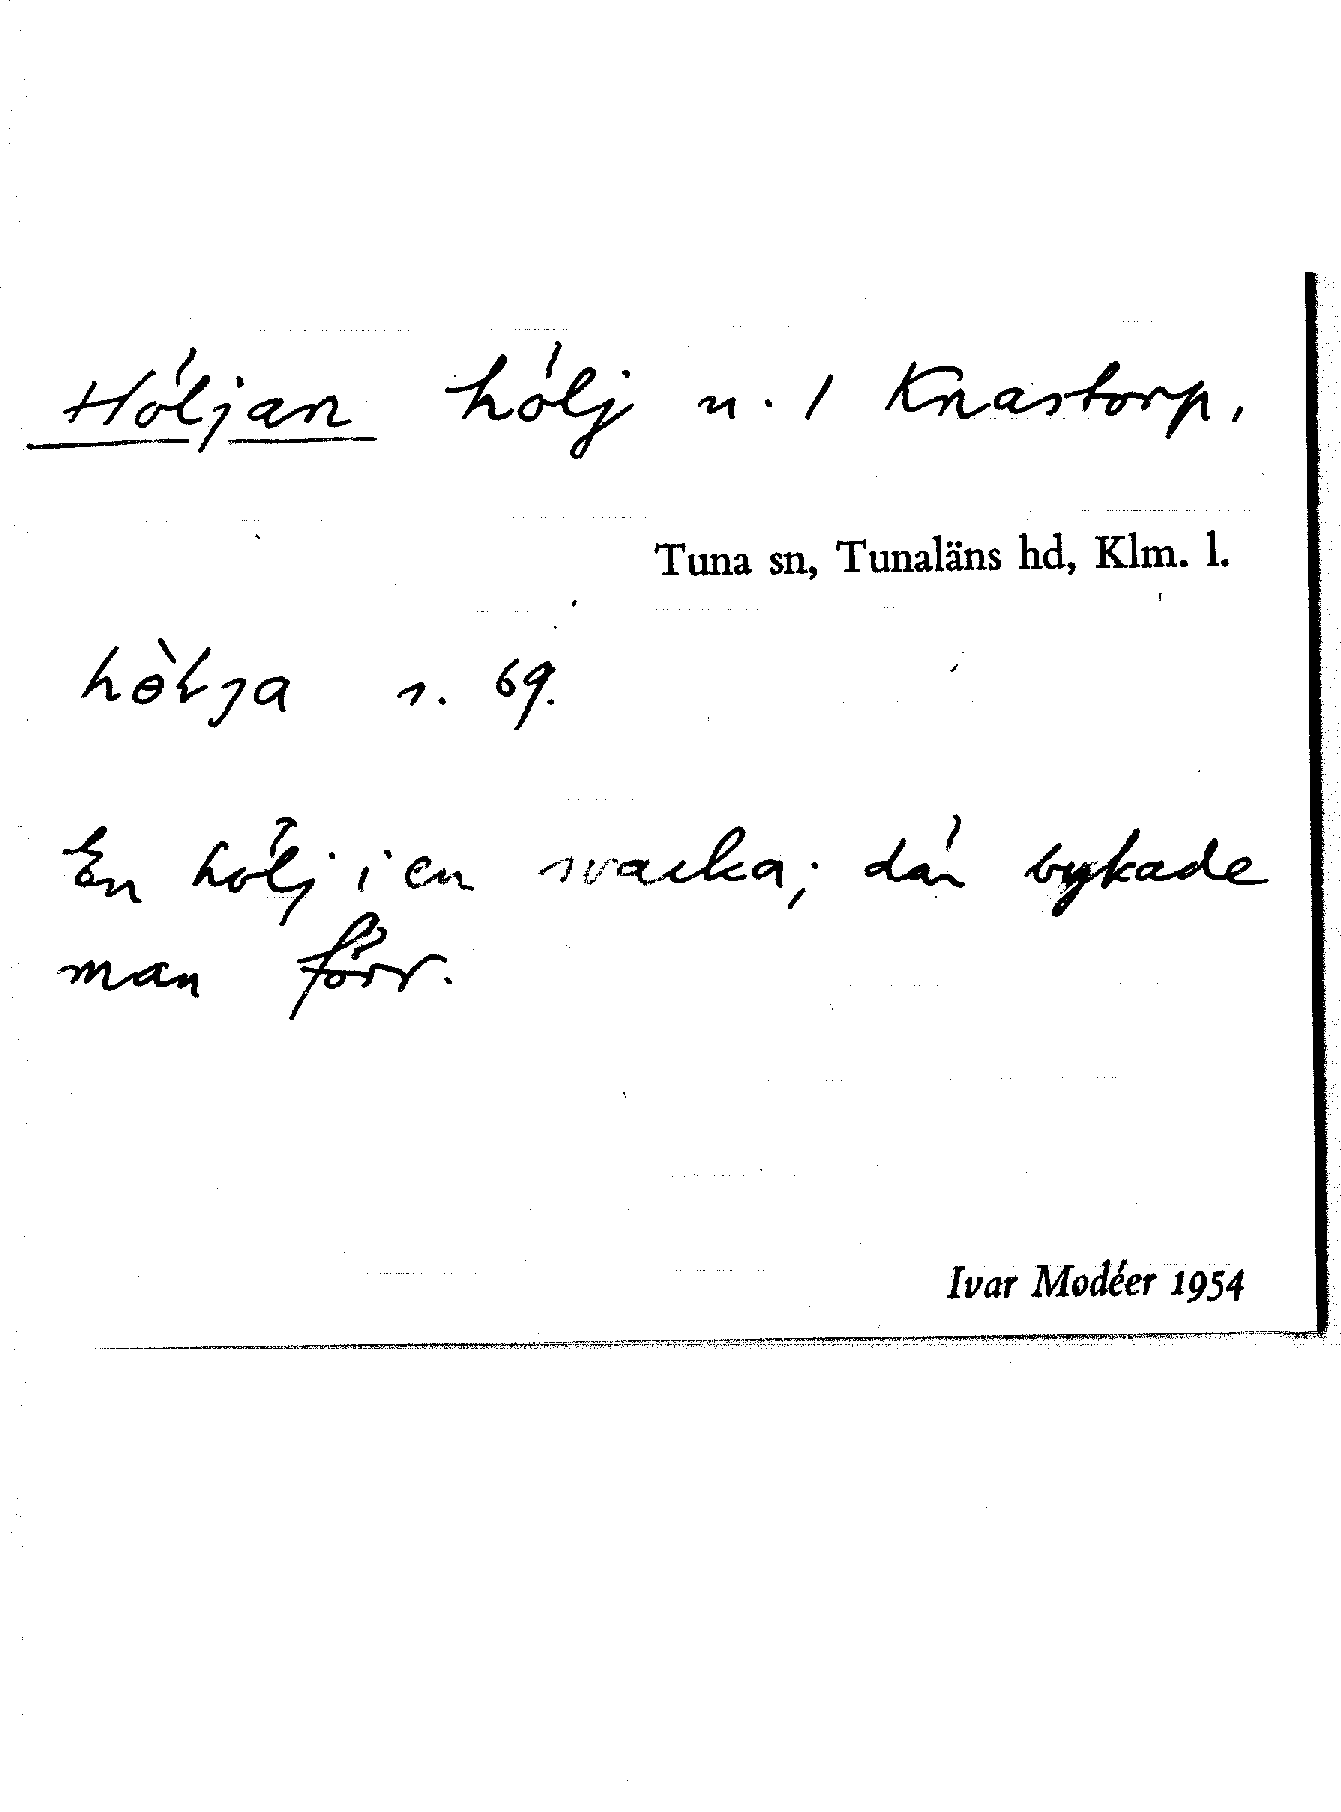 Höljan hölj n. / Knastorp,
Tuna sn, Tunaläns hd, Klm. l.
s. 69.
En hölj i en svacka; där bykade
man förr.
Ivar Modéer 1954